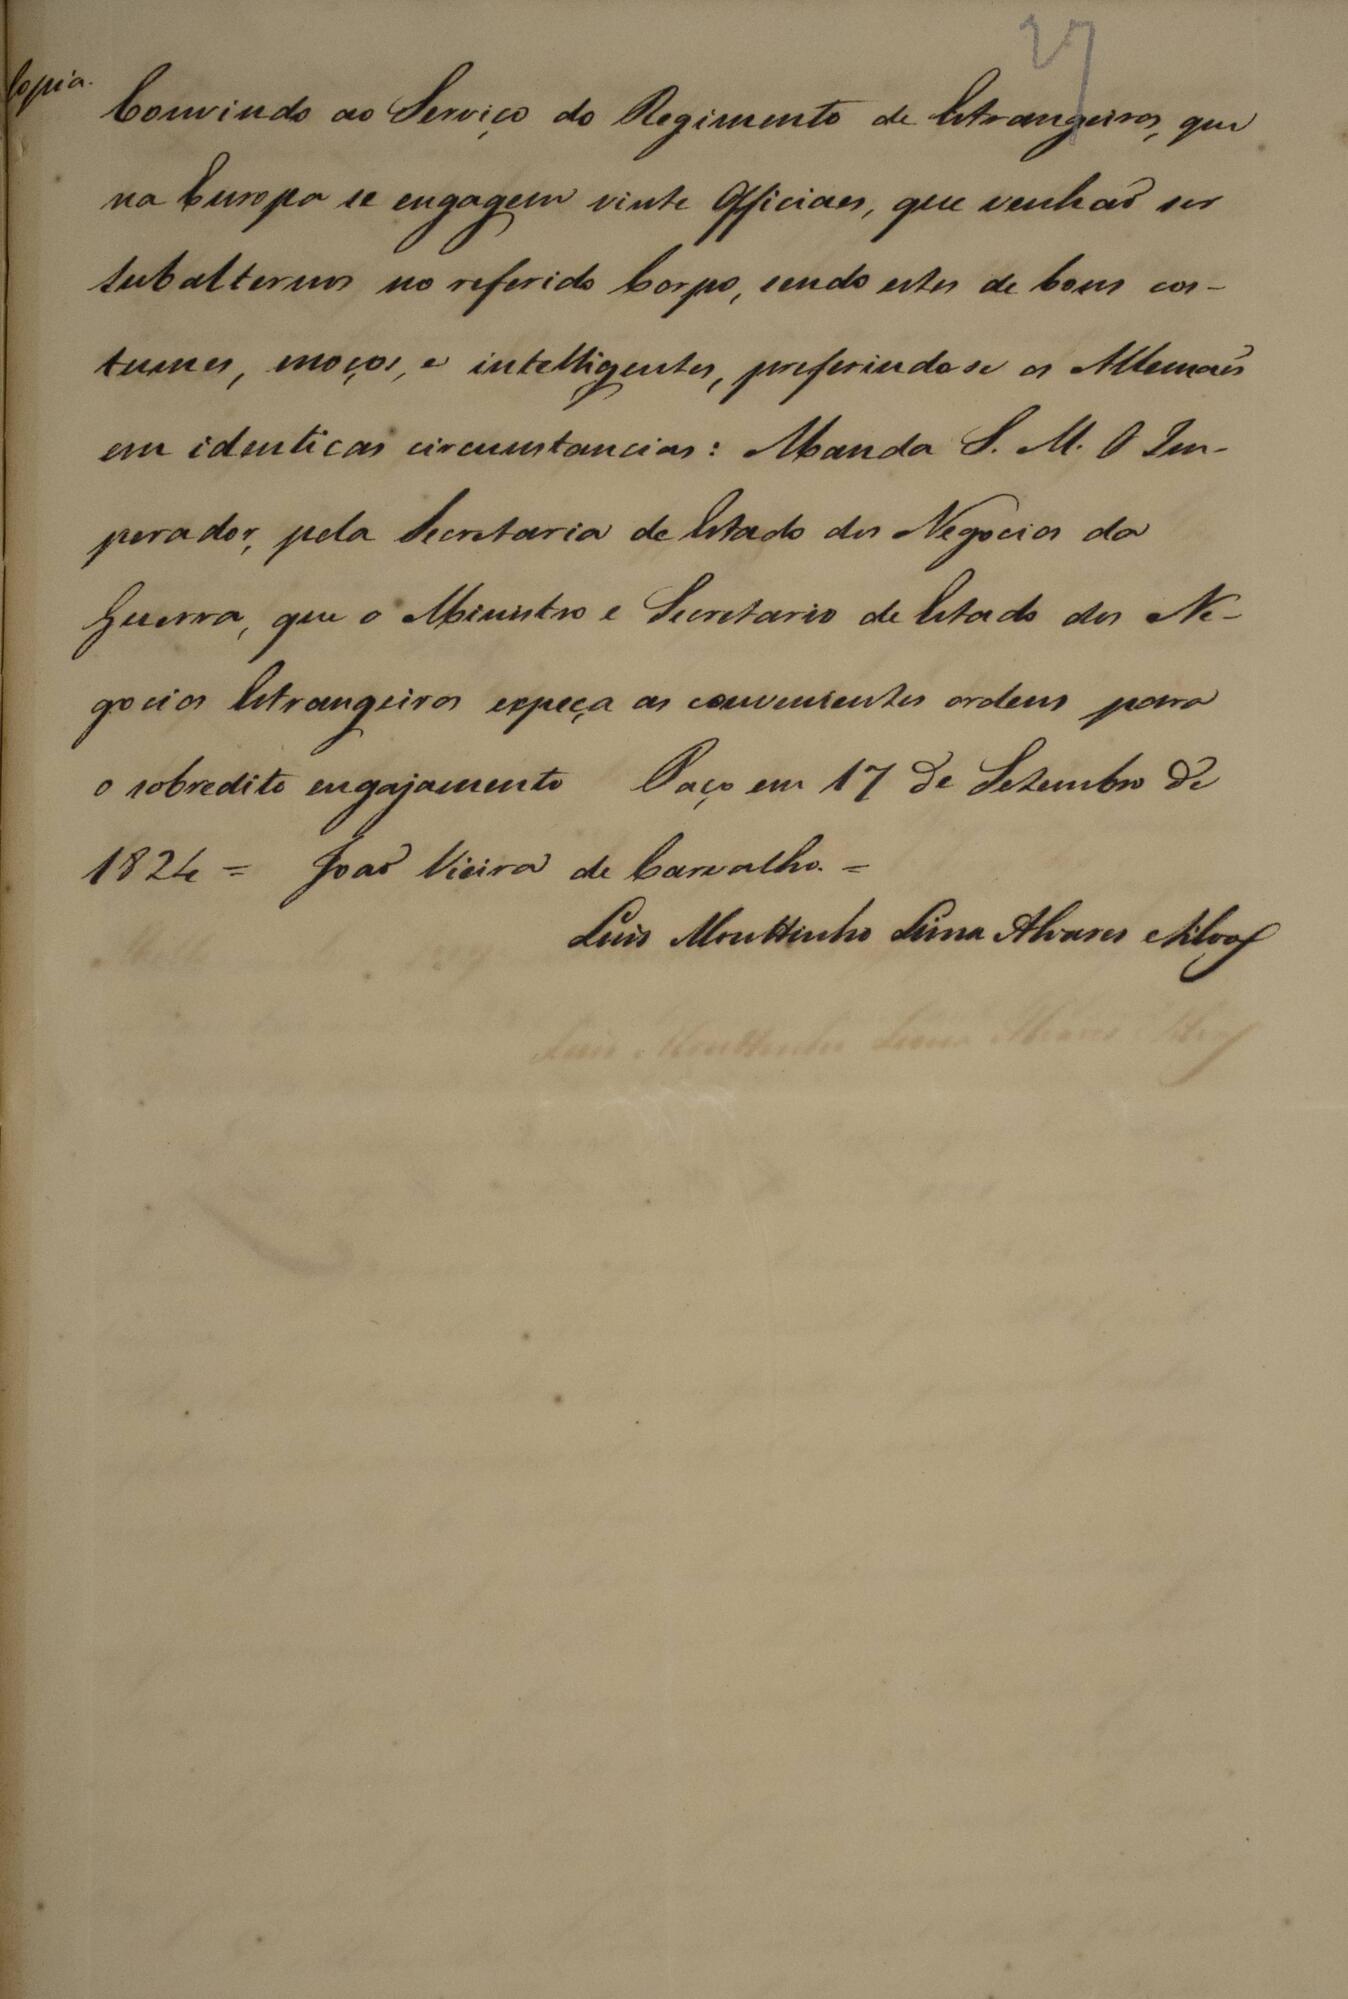 27
Copia.
Convindo ao Serviço do Regimento de Estrangeiros, que
na Europa se engagem vinte Officiaes, que venhaõ ser
subalternos no referido Corpo, sendo estes de bons cos-
tumes, moços, e intelligentes, preferindo se os Allemaẽs
em identicas circumstancias: Manda S. M. O Im-
perador, pela Secretaria de Estado dos Negocios da
Guerra, que o Ministro e Secretario de Estado dos Ne-
gocios Estrangeiros expeça as convenientes ordens para
o sobredito engajamento Paço em 17 de Setembro de
1824 = Joaõ Vieira de Carvalho. =
Luis Mouttinho Lima Alvares e Silva